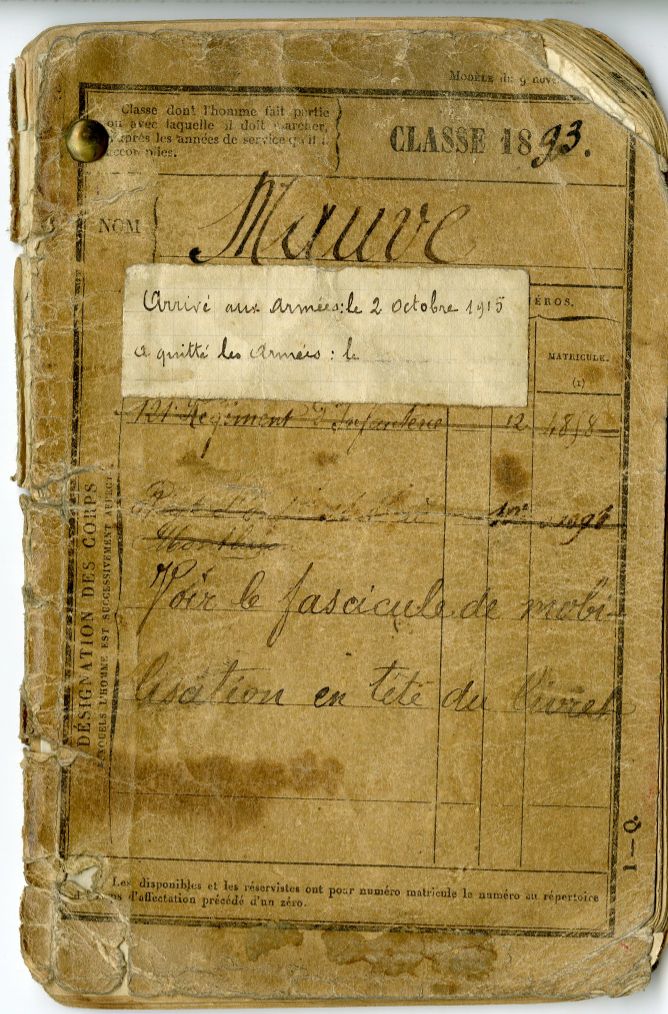 MODÈLE du 9 nove
Classe dont l'homme fait partie
ou avec laquelle il doit marcher,
d'après les années de service qu'il a
accomplies.
CLASSE 1893.
NOM
Mauve
Arrivé aux armées: le 2 octobre 1915
a quitté les armées : le
ÉROS.
MATRICULE.
(1)
121e Régiment d'Infanterie 12 4858
Montluçon
Voir le fascicule de mobi-
lisation en tête du livret
DÉSIGNATION DES CORPS
AUXQUELS L'HOMME EST SUCCESSIVEMENT AFFECTÉ
1—Q.
Les disponibles et les réservistes ont pour numéro matricule le numéro au répertoire
d'affectation précédé d'un zéro.